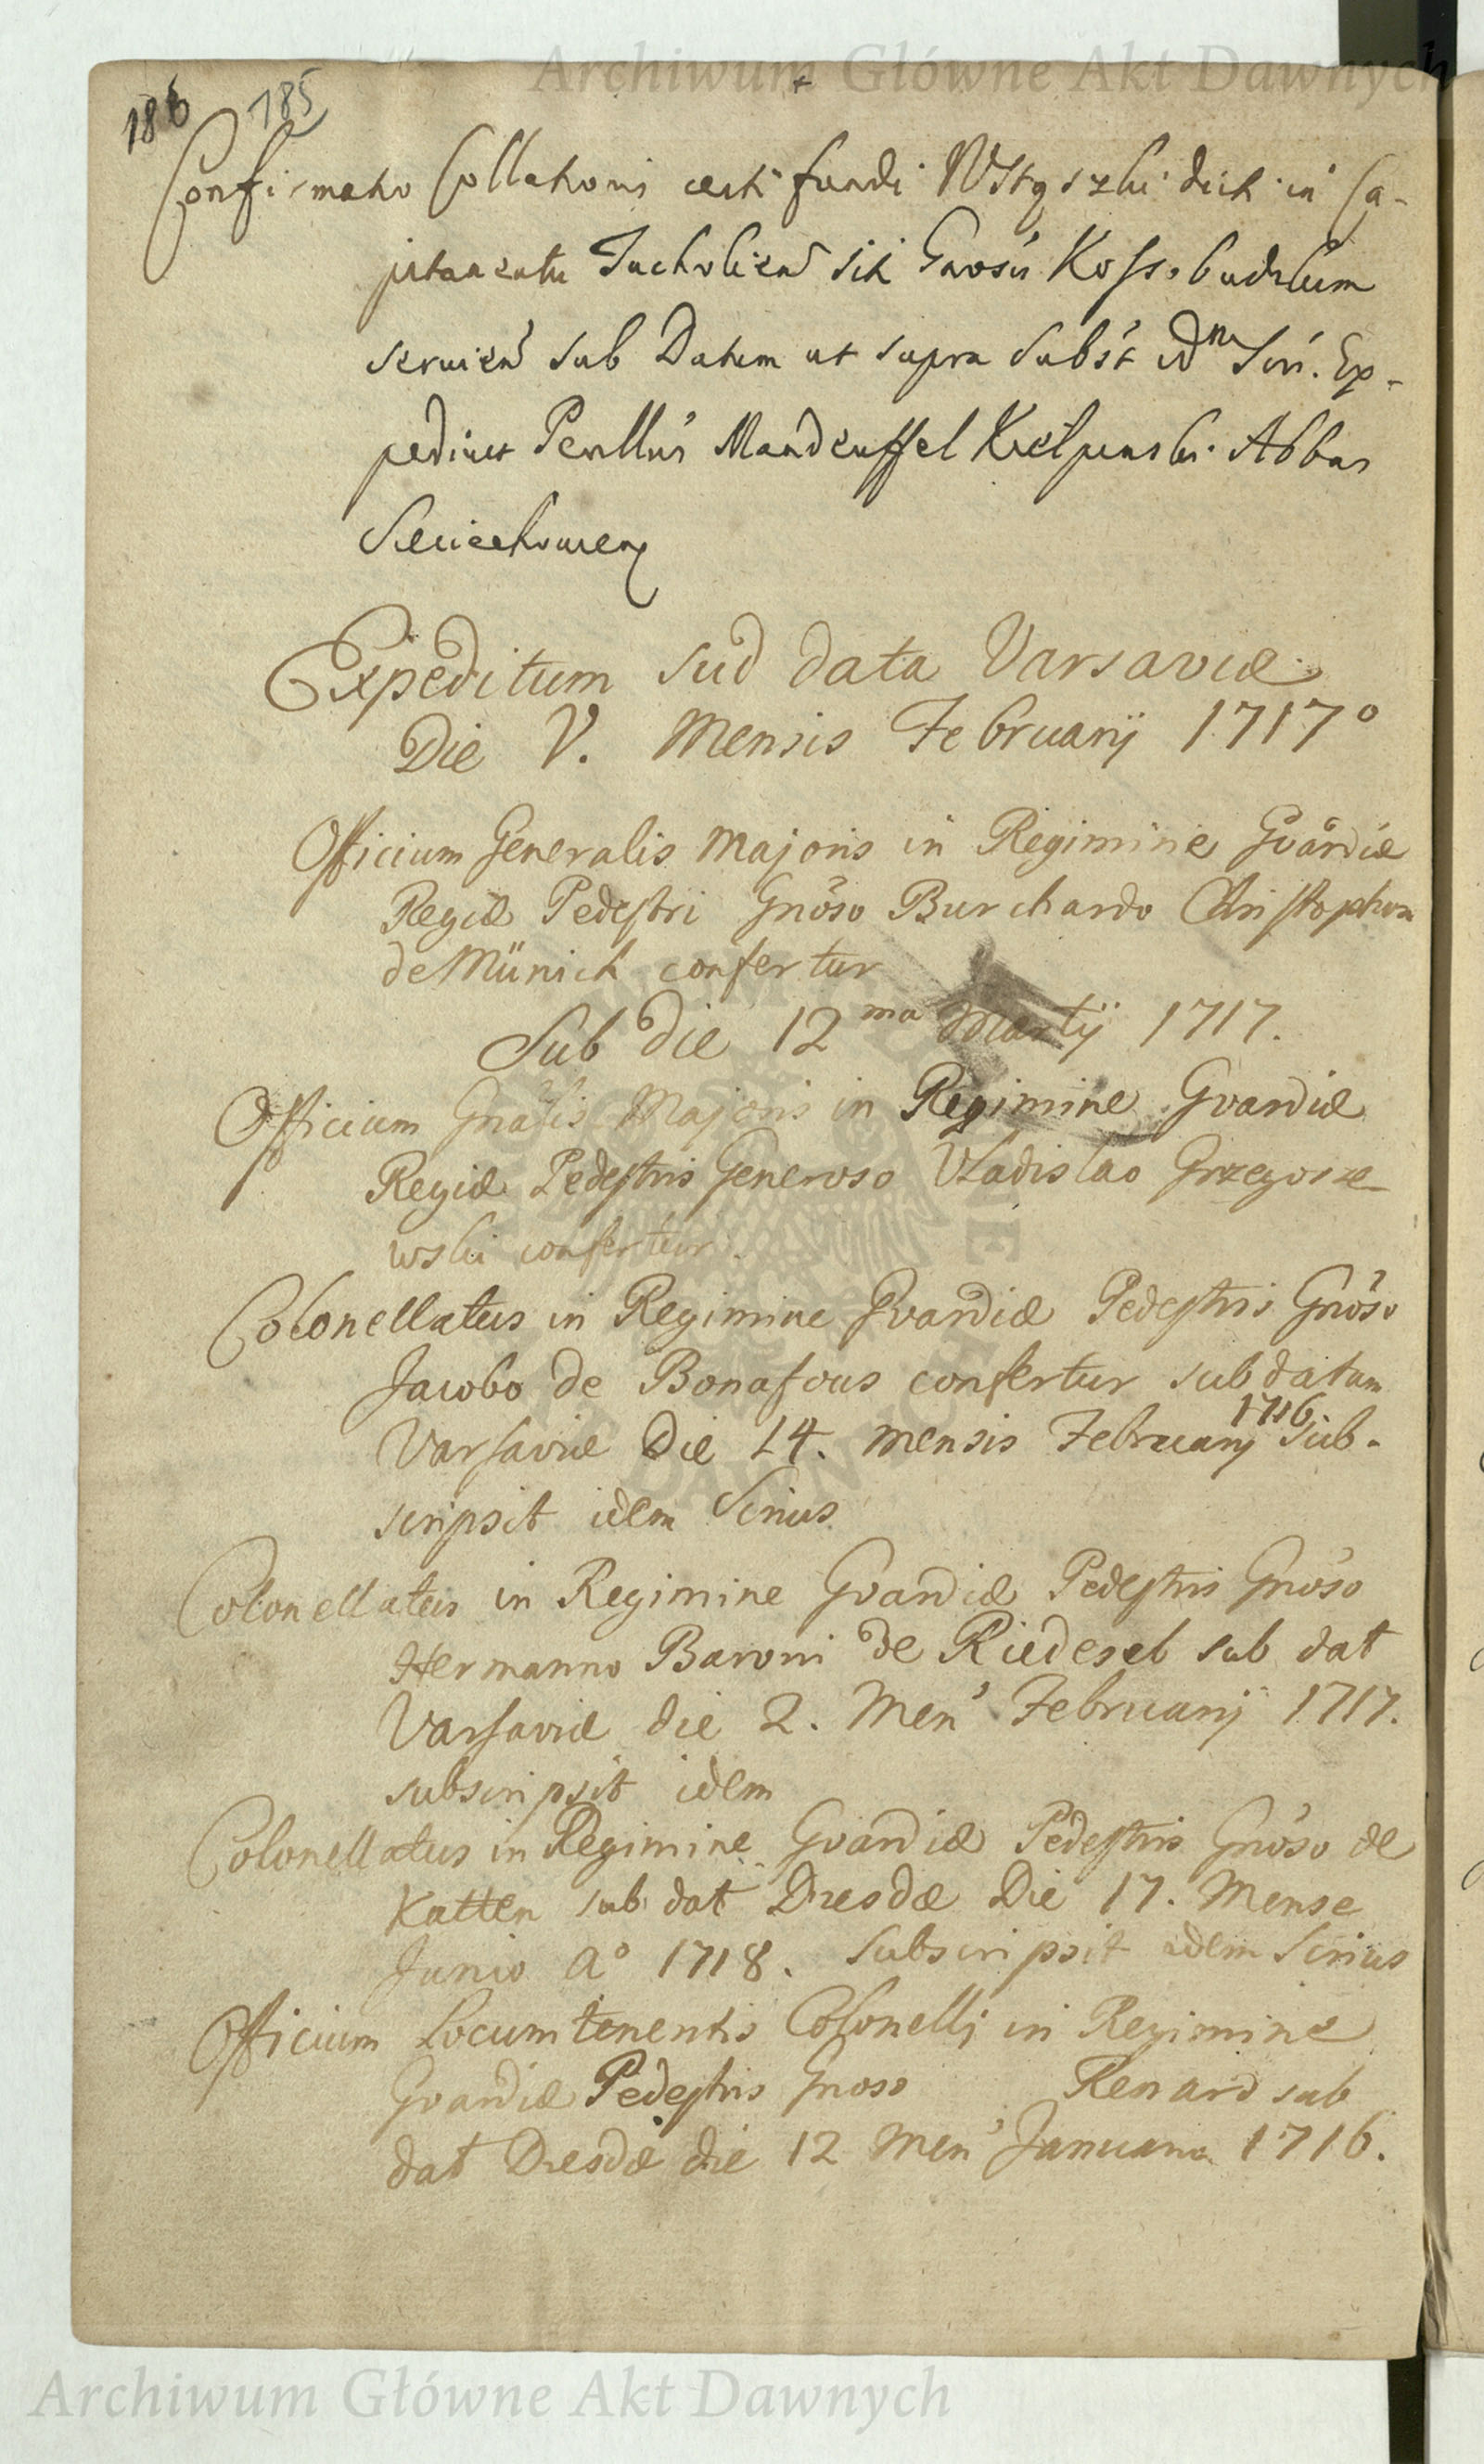 Archiwum Główne Akt Dawnych
186 185
Confirmatio Collationis certi fundi Wstążki dicti in Ca-
pitaneatu Tucholien sitі Gnosis Kossobudzkim
servien sub Datum ut supra Subst idm Snri. Ex-
pedivit Perillus Mandeuffel Kiełpinski Abbas
Sieciechovien
Expeditum sud data Varsaviæ
Die V. Mensis Februarij 1717º
Officium Generalis Majoris in Regimine Gvardiæ
Regiæ Pedestri Gnoso Burchardo Christophoro
de Münich confertur
Sub die 12ma Martij 1717.
Officium Gnalis Majoris in Regimine Gvardiæ
Regiæ Pedestris Generoso Vladislao Grzegorze-
wski confertur.
Colonellatus in Regimine Gvardiæ Pedestris Gnoso
Jacobo de Bonafous confertur sub datum
Varsaviæ Die 14. mensis Februarij 1716. Sub-
scripsit idem Srius
Colonellatus in Regimine Gvardiæ Pedestris Gnoso
Hermanno Baroni de Riedesel sub dat
Varsaviæ die 2. Men Februarij 1717.
subscripsit idem
Colonellatus in Regimine Gvardiæ Pedestris Gnoso de
Katten sub dat Dresdæ Die 17. Mense
Junio Aº 1718. Subscripsit idem Srius
Officium Locumtenentis Colonelli in Regimine
Gvardiæ Pedestris Gnoso Renard sub
dat Dresdæ die 12 Men Januarii 1716.
Archiwum Główne Akt Dawnych